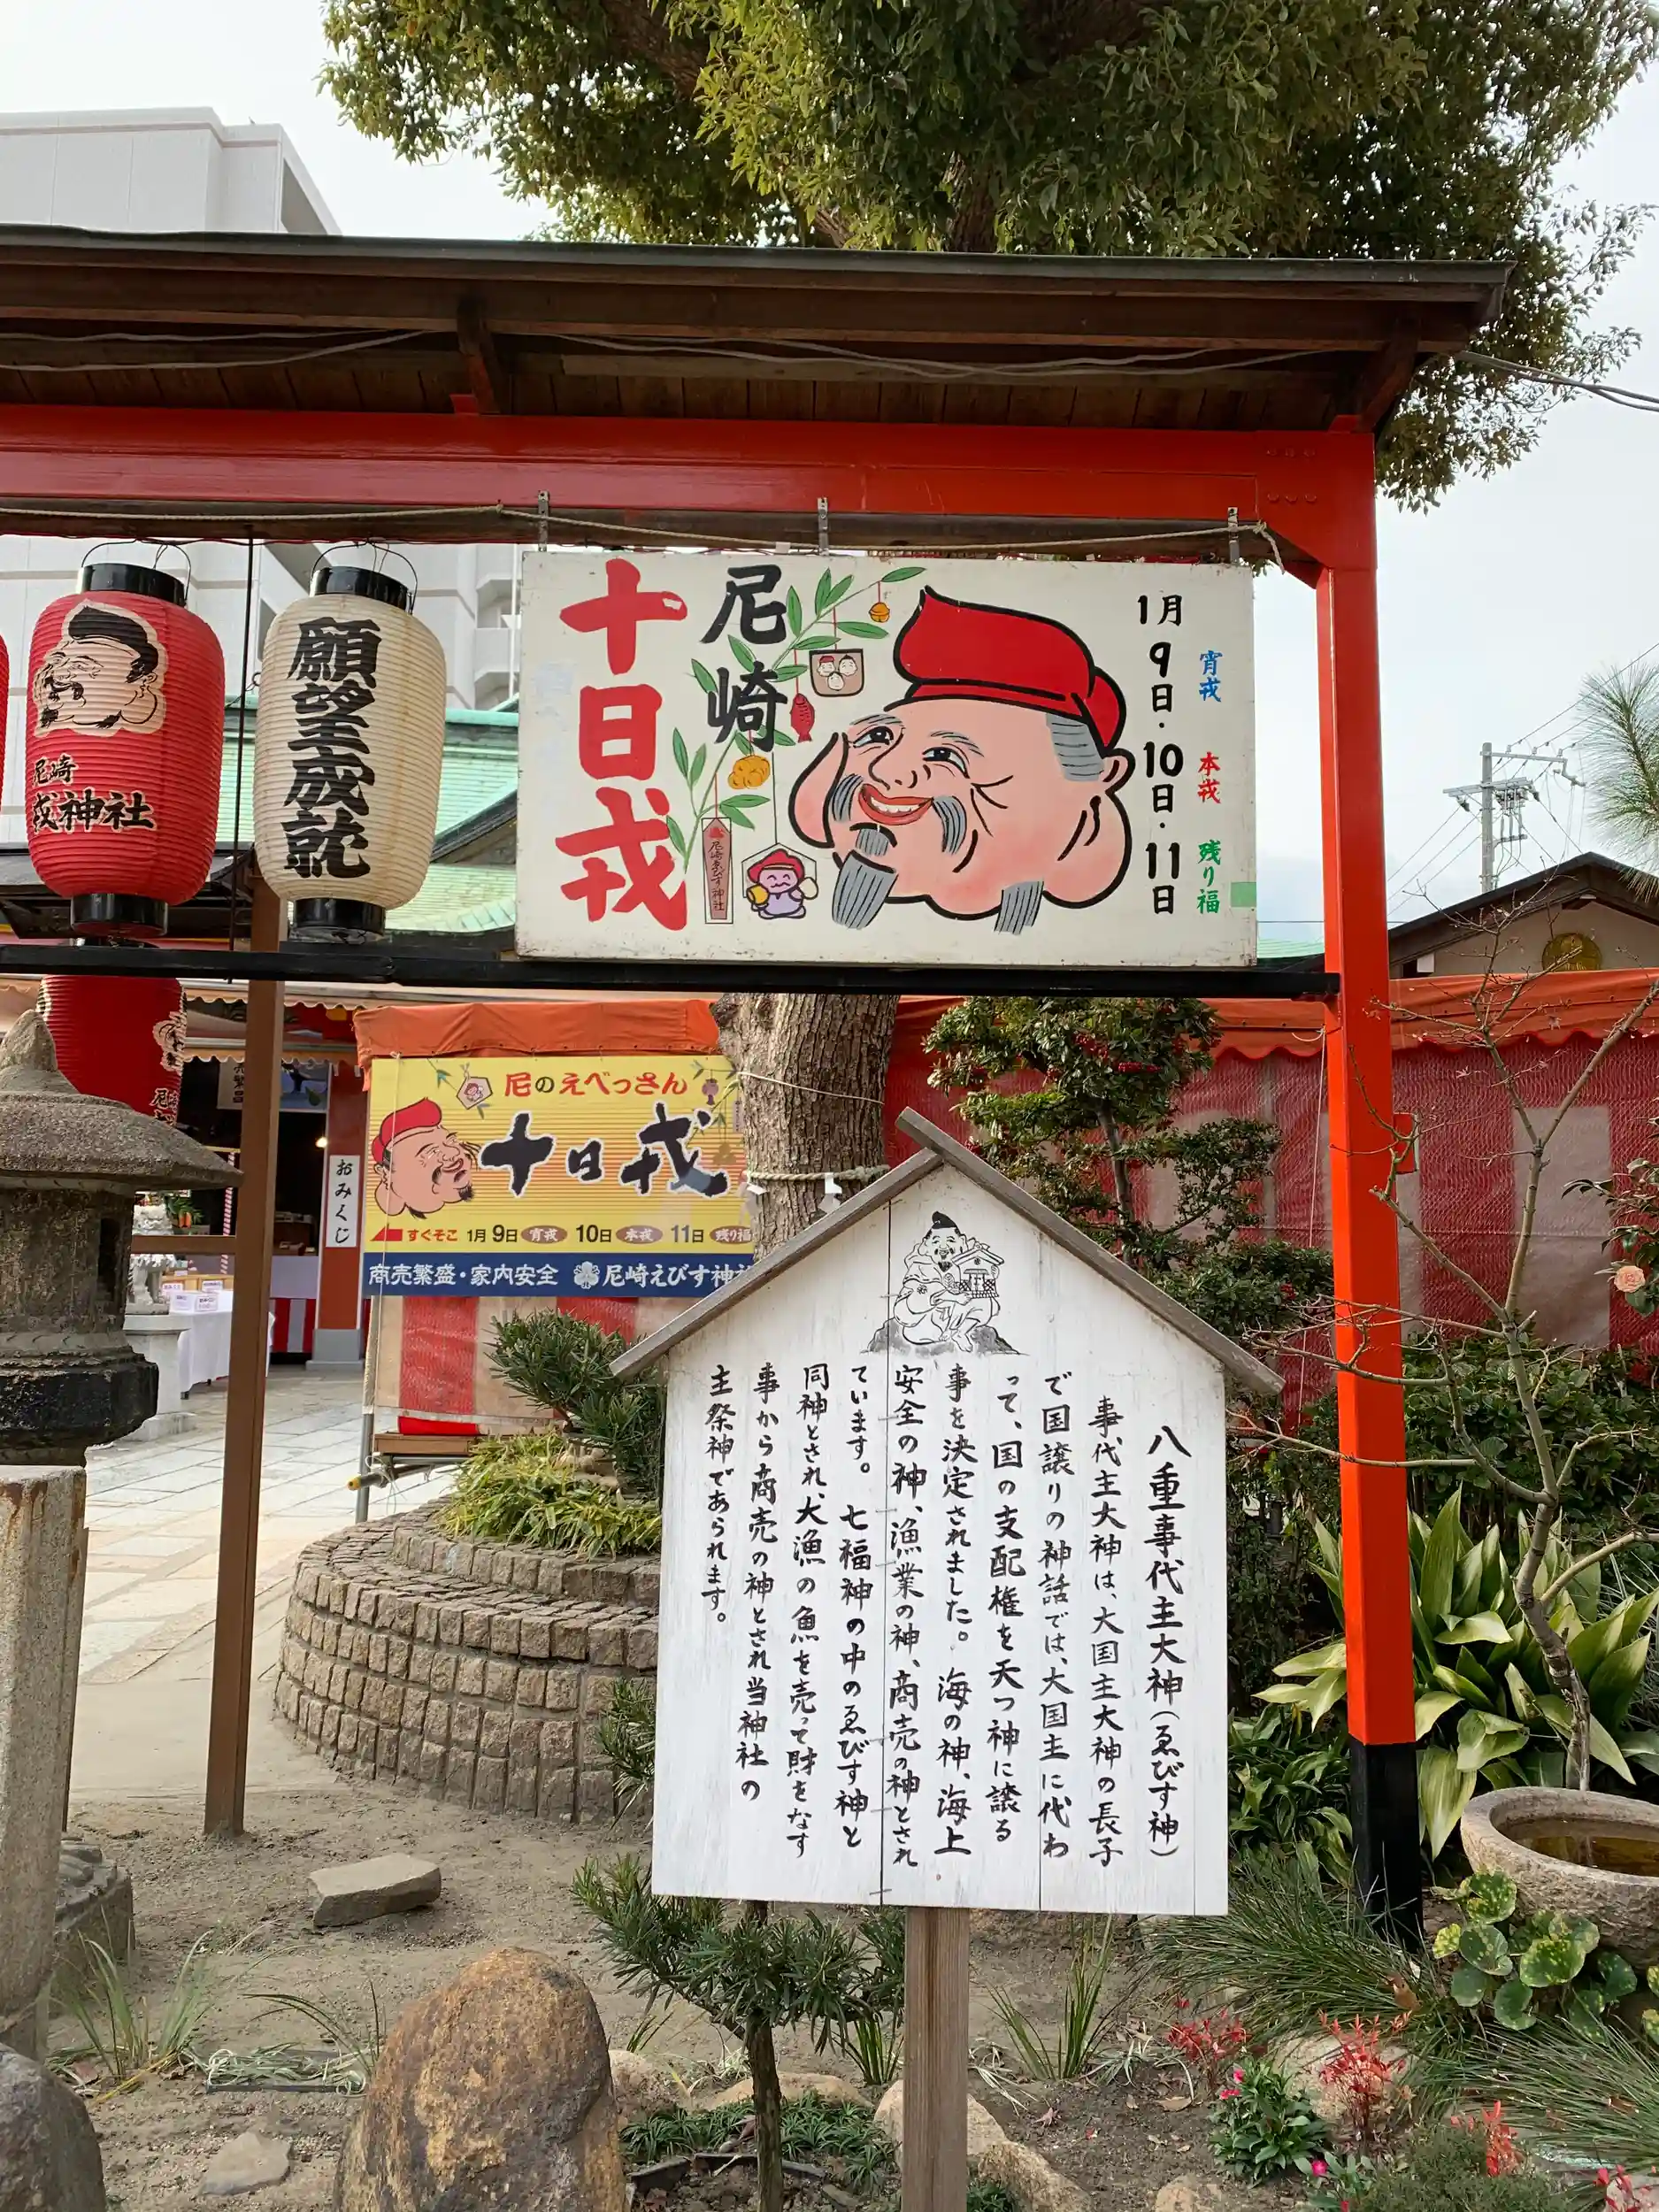 尼崎
十日戎
1月
9日・10日・11日
宵戎
本戎
残り福
尼崎ゑびす神社
願望成就
尼崎
戎神社
尼のえべっさん
十日戎
すぐそこ 1月9日 宵戎 10日 本戎 11日 残り福
商売繁盛・家内安全 尼崎えびす神社
おみくじ
八重事代主大神(ゑびす神)
事代主大神は、大国主大神の長子
で国譲りの神話では、大国主に代わ
って、国の支配権を天つ神に譲る
事を決定されました。海の神、海上
安全の神、漁業の神、商売の神とされ
ています。七福神の中のゑびす神と
同神とされ、大漁の魚を売って財をなす
事から商売の神とされ当神社の
主祭神であられます。